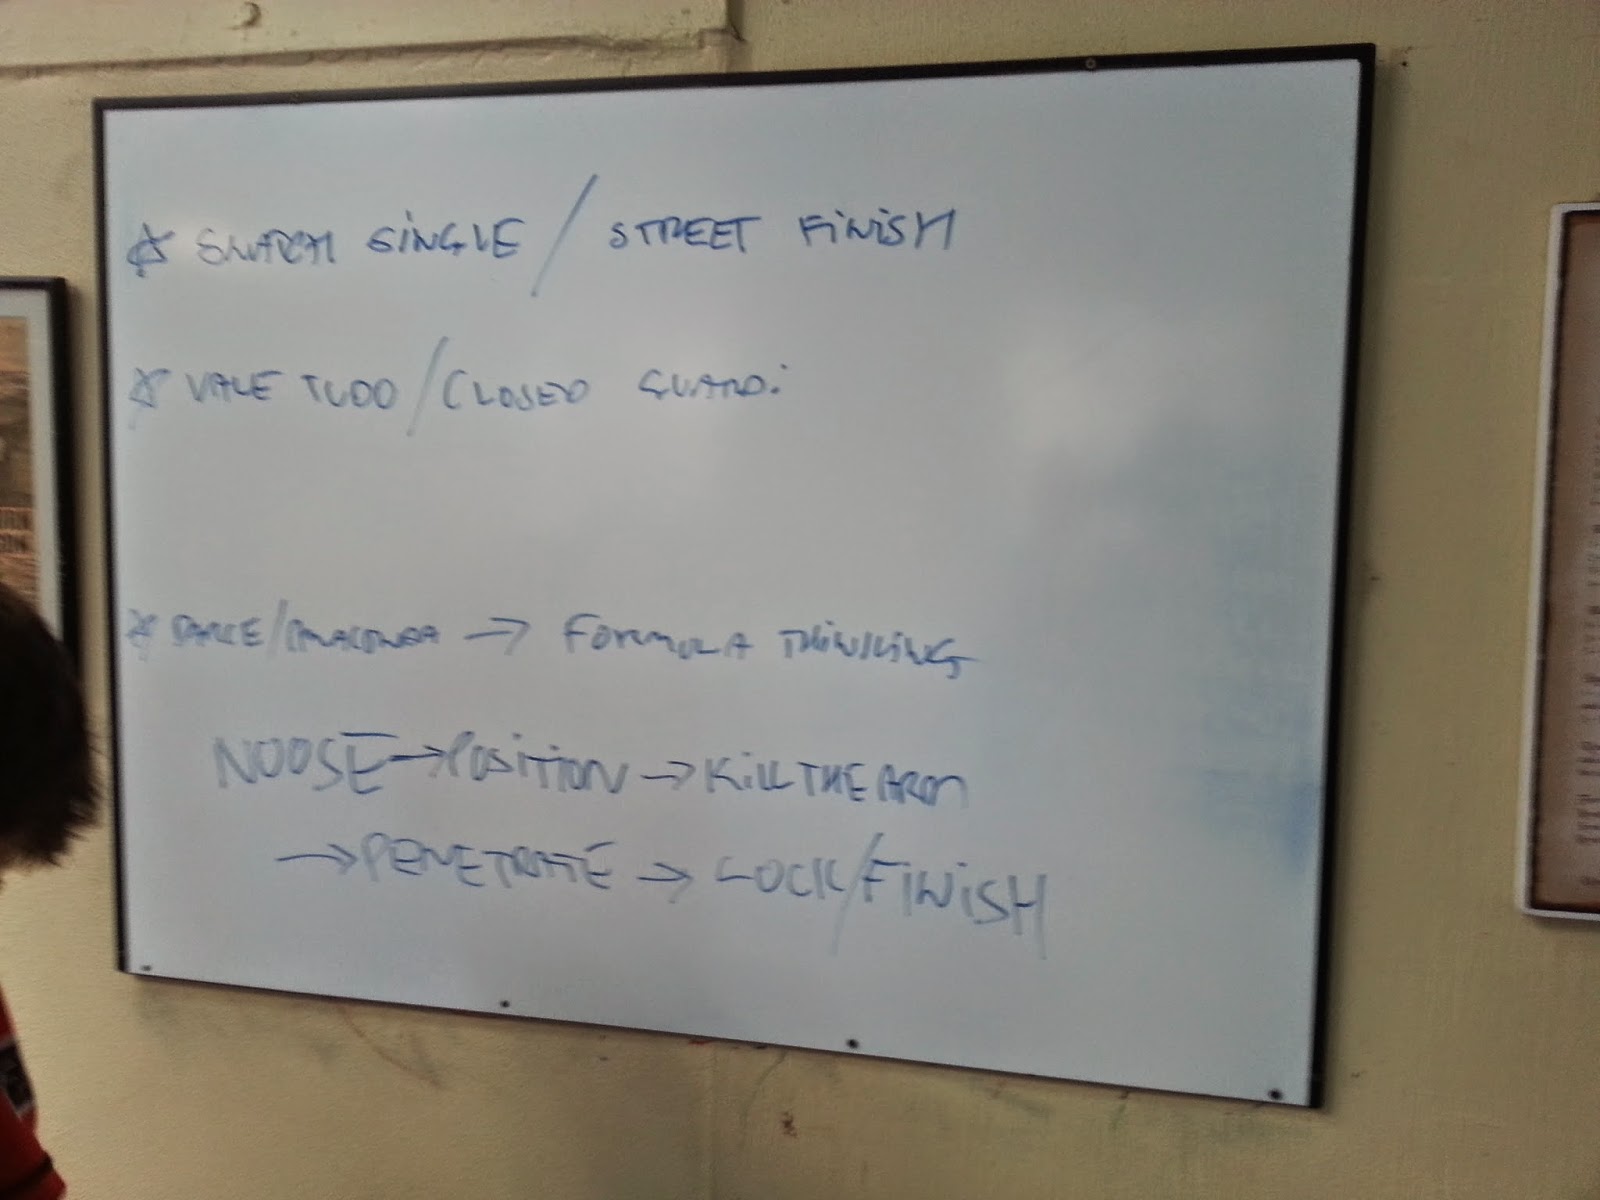 ☆ SNATCH SINGLE / STREET FINISH
☆ VALE TUDO / CLOSED GUARD.
☆ DARCE/ANACONDA → FORMULA THINKING
NOOSE → POSITION → KILL THE ARM
→ PENETRATE → LOCK/FINISH